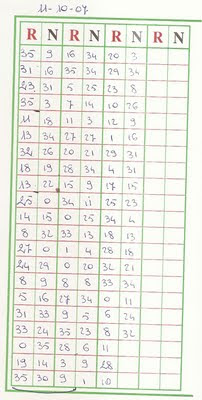 11-10-07
R N R N R N R N
35 9 16 34 20 3
31 16 35 34 29 34
23 31 5 25 23 8
35 3 7 14 10 26
11 18 11 3 12 9
13 34 27 27 1 16
32 26 20 21 29 31
18 19 28 34 4 31
13 22 15 9 17 15
25 0 34 11 25 23
14 15 0 25 34 4
8 32 33 13 18 13
27 0 1 4 28 18
24 29 0 20 32 21
8 9 8 8 33 34
5 16 27 34 0 11
31 33 9 5 6 24
33 24 35 23 8 32
0 35 28 6 11
19 14 3 9 28
35 30 9 1 10